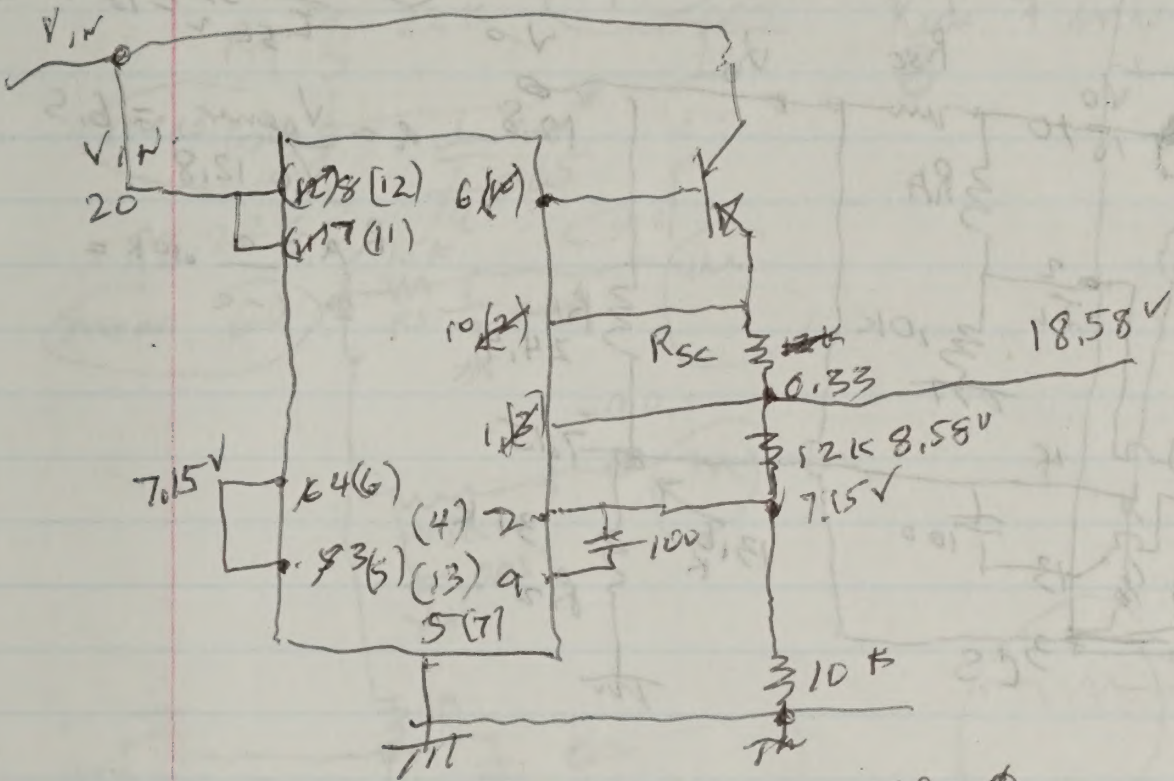 VIN
VIN
20
8 (12)
7 (11)
6
10
RSC
0.33
18.58V
1
12K 8.58V
7.15V
4(6)
(4) 2
7.15V
100
3(5) (13) 9
5(7)
10K